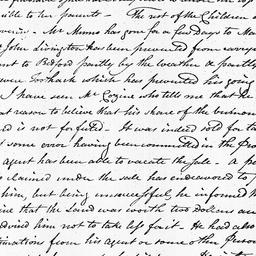 ible to her parents — The rest of the Children a
Mr Munro has gone for a few days to Ma
John Livingston has been prevented from carrying
to Bedford partly by the weather & partly
were which has prevented his going
I have seen Mr Cozine who tells me that he
at reason to believe that his share of the
d is not forfeited — It was indeed sold for ta
some error having been committed in the pro
agent has been able to vacate the sale — a pe
claimed under the sale has endeavored to
him, but being unsuccessful, he informed
ine that the Land was worth two dollars an
advised him not to take less for it. He had also
mations from his agent or some other person